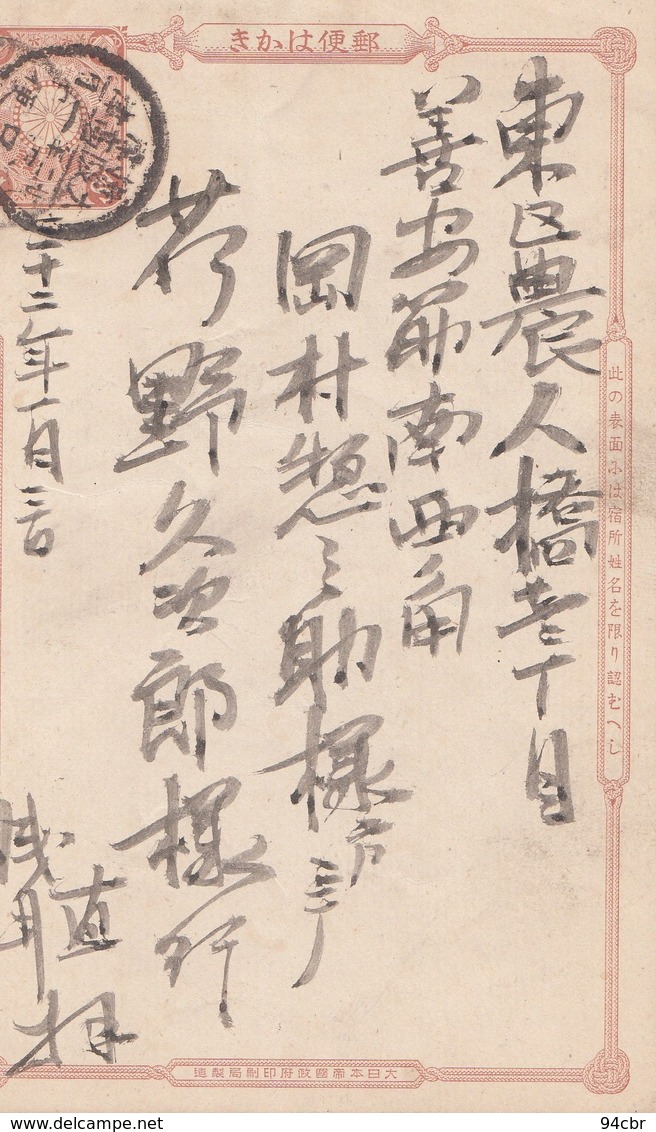 郵便はかき
此の表面には宿所姓名を限り認むへし
東区農人橋壱丁目
善安筋南西角
岡村惣之助様
野久次郎様行
二十二年一月
直
拝
大日本帝國政府印刷局製造
94cbr